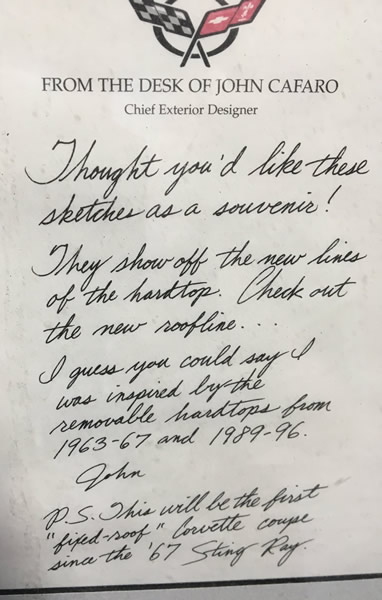 FROM THE DESK OF JOHN CAFARO
Chief Exterior Designer
Thought you'd like these
sketches as a souvenir!
They show off the new lines
of the hardtop. Check out
the new roofline...
I guess you could say I
was inspired by the
removable hardtops from
1963-67 and 1989-96.
John
P.S. This will be the first
"fixed-roof" Corvette coupe
since the '67 Sting Ray.